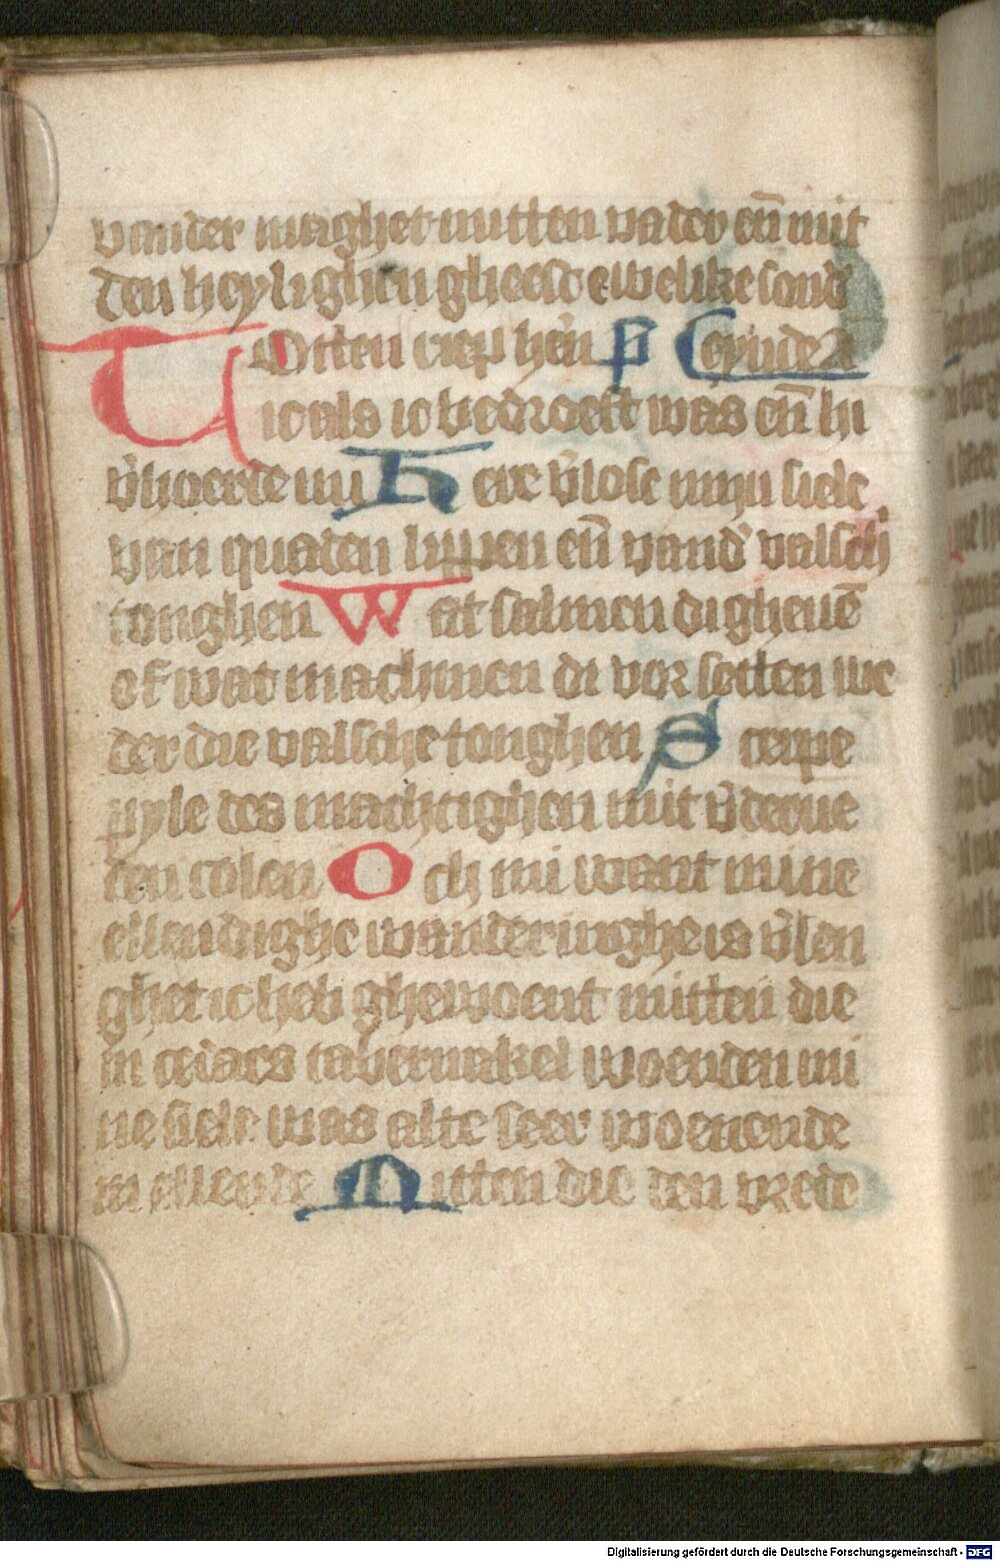 vander maghet mitten vader en̄ mit
den heylighen gheeste ewelike sond'
Totten riep hē ic in p̄s Eynde A
ic als ic bedroeft was en̄ hi
v'hoerde mi Here v'lose mijn siele
van quaden lippen en̄ vand' valsch
tonghen Wat salmen di gheuē
of wat machmen di voer setten we
der die valsche tonghen Scerpe
pyle des machtighen mit v'deruē
den colen Och mi want mine
ellendighe wanderinghe is v'len
ghet ic heb ghewoent mitten die
in cedars tabernakel woenden mi
ne siele was alte seer woenende
in ellende Mitten die den vrede
Digitalisierung gefördert durch die Deutsche Forschungsgemeinschaft - DFG